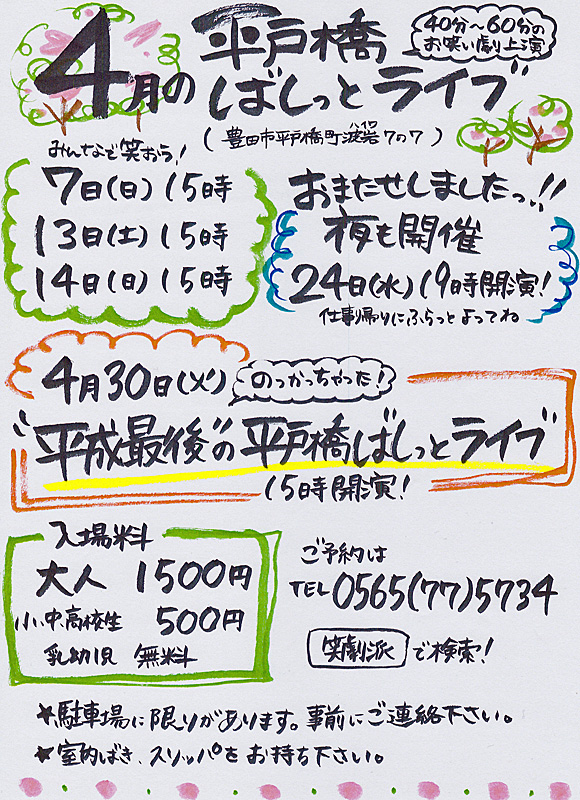 4月の
平戸橋
ばしっとライブ
40分〜60分の
お笑い劇上演
(豊田市平戸橋町波岩7の7)
ハイワ
みんなで笑おう!
7日(日)15時
13日(土)15時
14日(日)15時
おまたせしましたっ!!
夜も開催
24日(水)19時開演!
仕事帰りにふらっとよってね
4月30日(火)
のっかっちゃった!
"平成最後"の平戸橋ばしっとライブ
15時開演!
入場料
大人 1500円
小、中、高校生 500円
乳幼児 無料
ご予約は
TEL 0565(77)5734
笑劇派 で検索!
★駐車場に限りがあります。事前にご連絡下さい。
★室内ばき、スリッパをお持ち下さい。